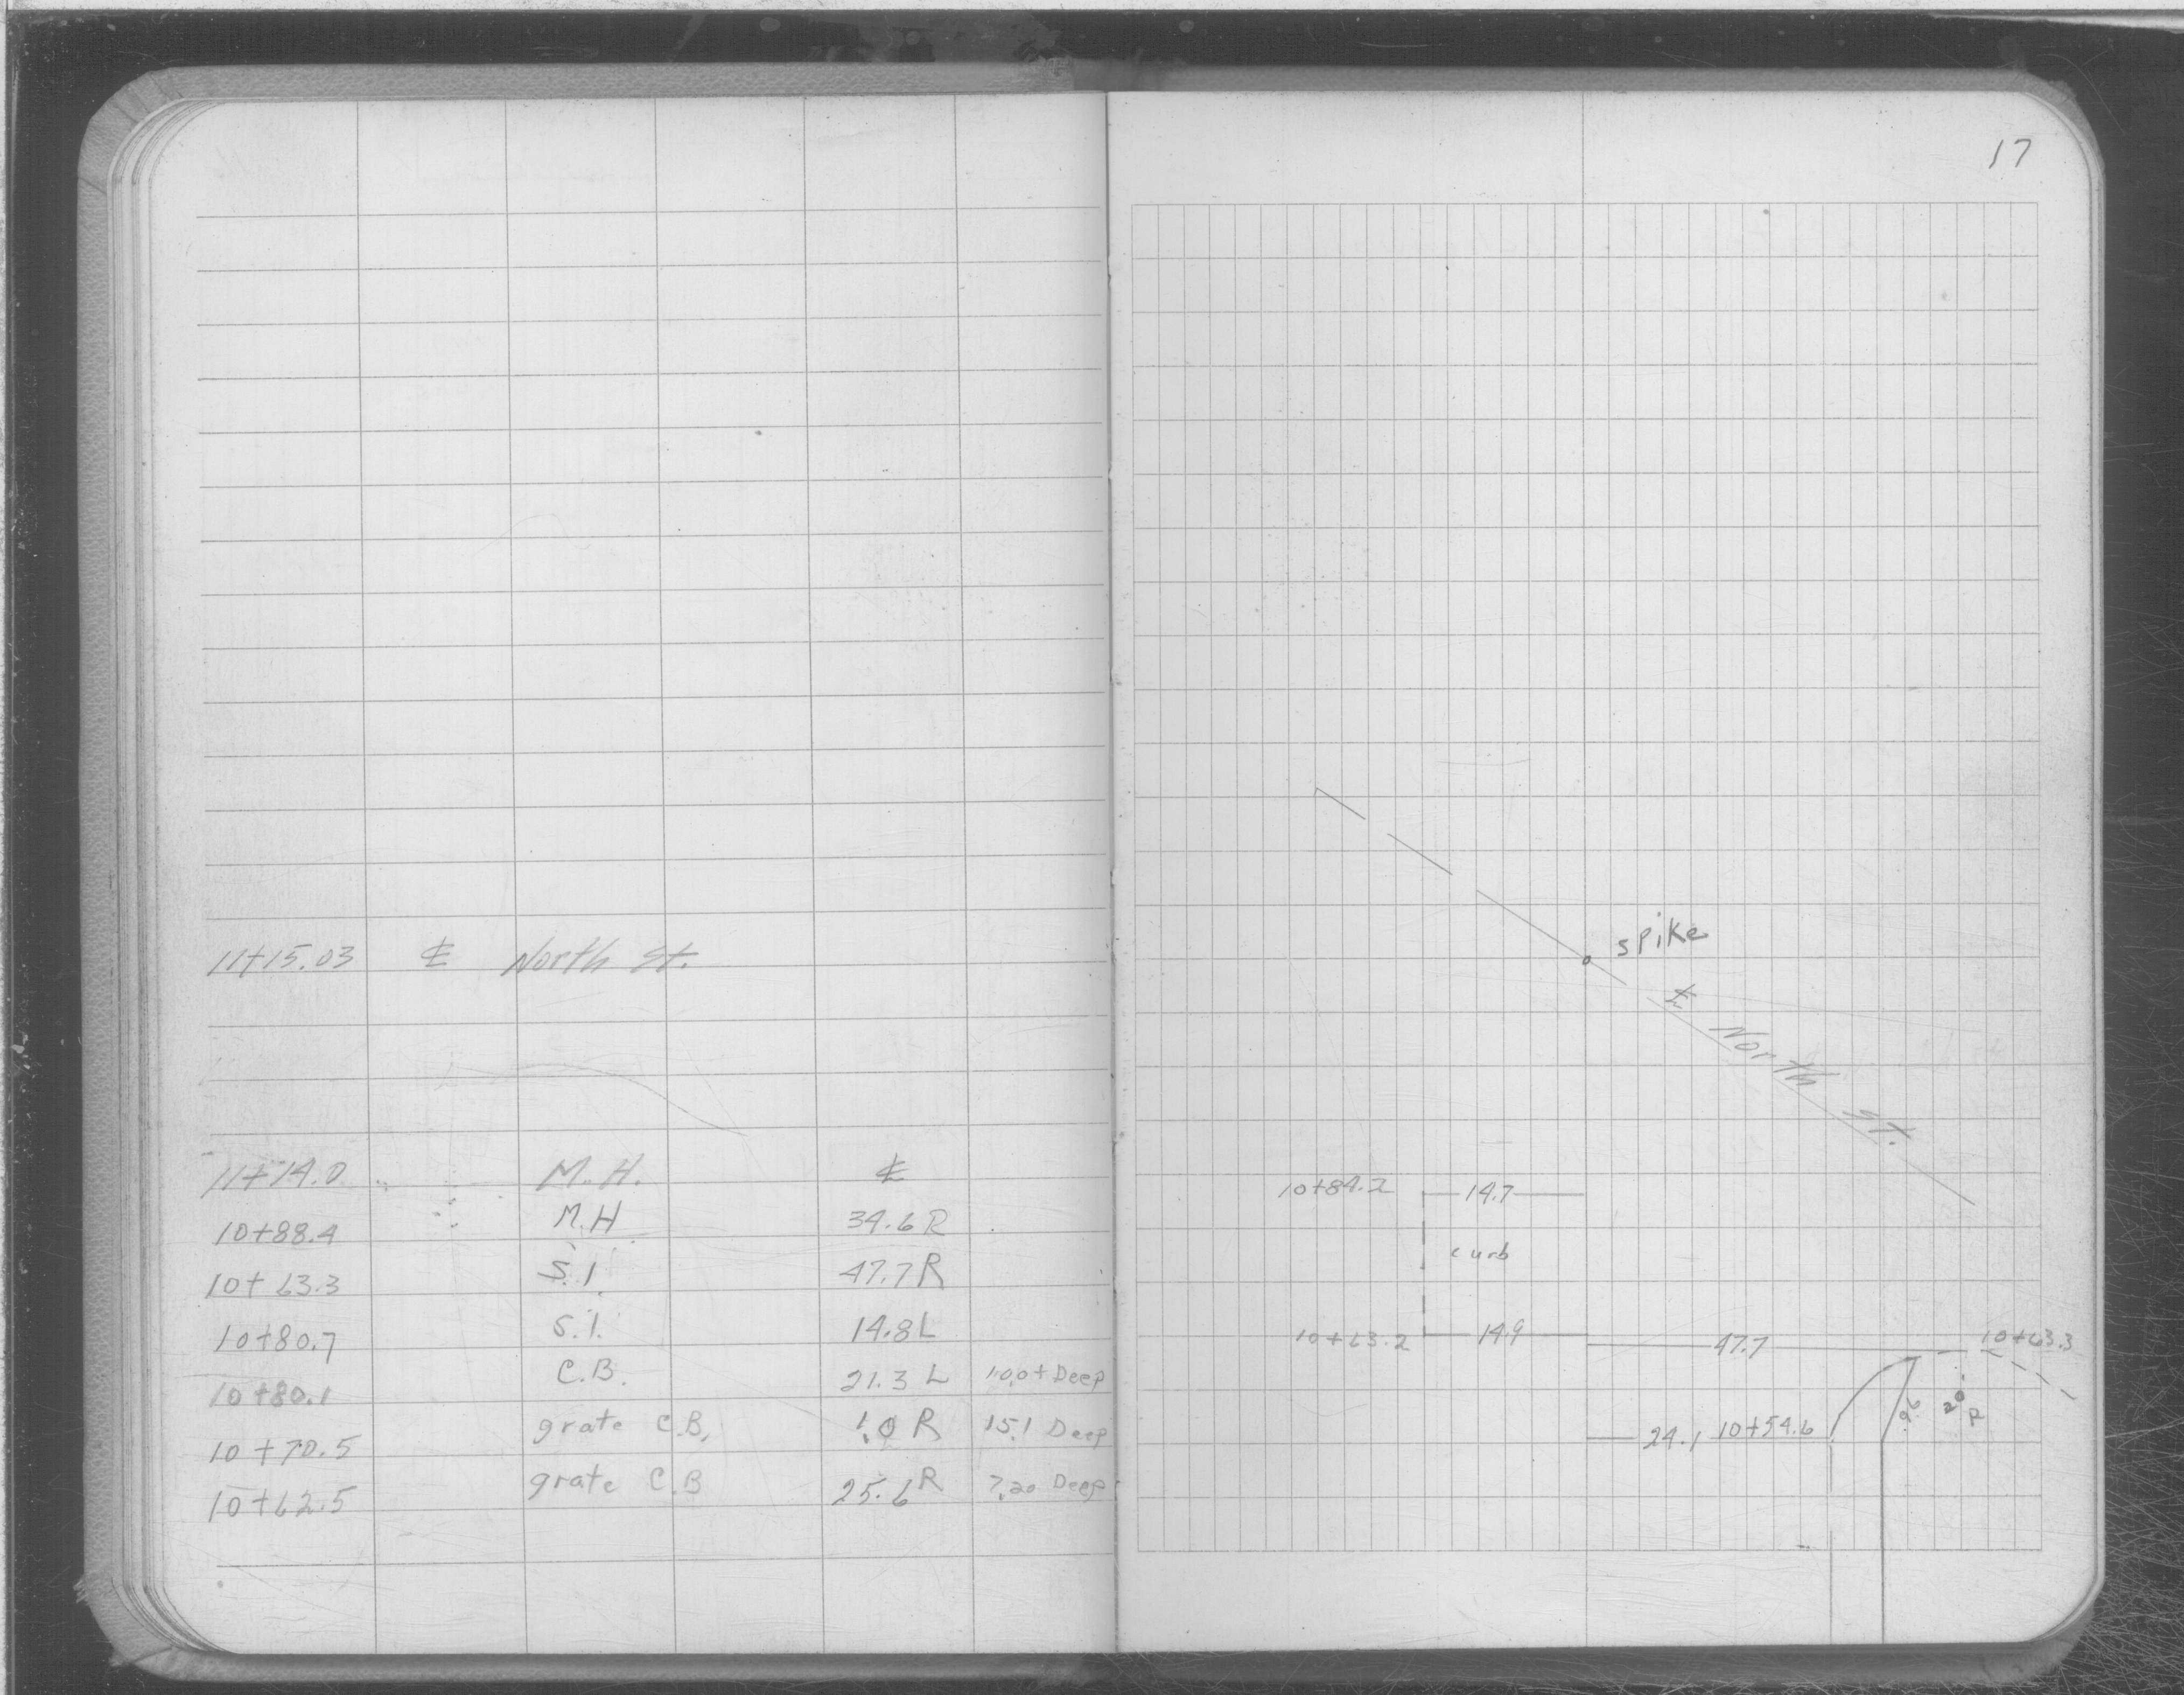 17
11+15.03 ℄ North St.
11+14.0 M.H. ℄
10+88.4 M.H 34.6 R
10+63.3 S.I. 47.7 R
10+80.7 S.I. 14.8 L
10+80.1 C.B. 21.3 L 10.0+ Deep
10+70.5 grate C.B. 1.0 R 15.1 Deep
10+62.5 grate C.B 25.6 R 7.20 Deep
spike
℄ North St.
10+84.2 14.7
curb
10+63.2 14.9 47.7 10+63.3
24.1 10+54.6